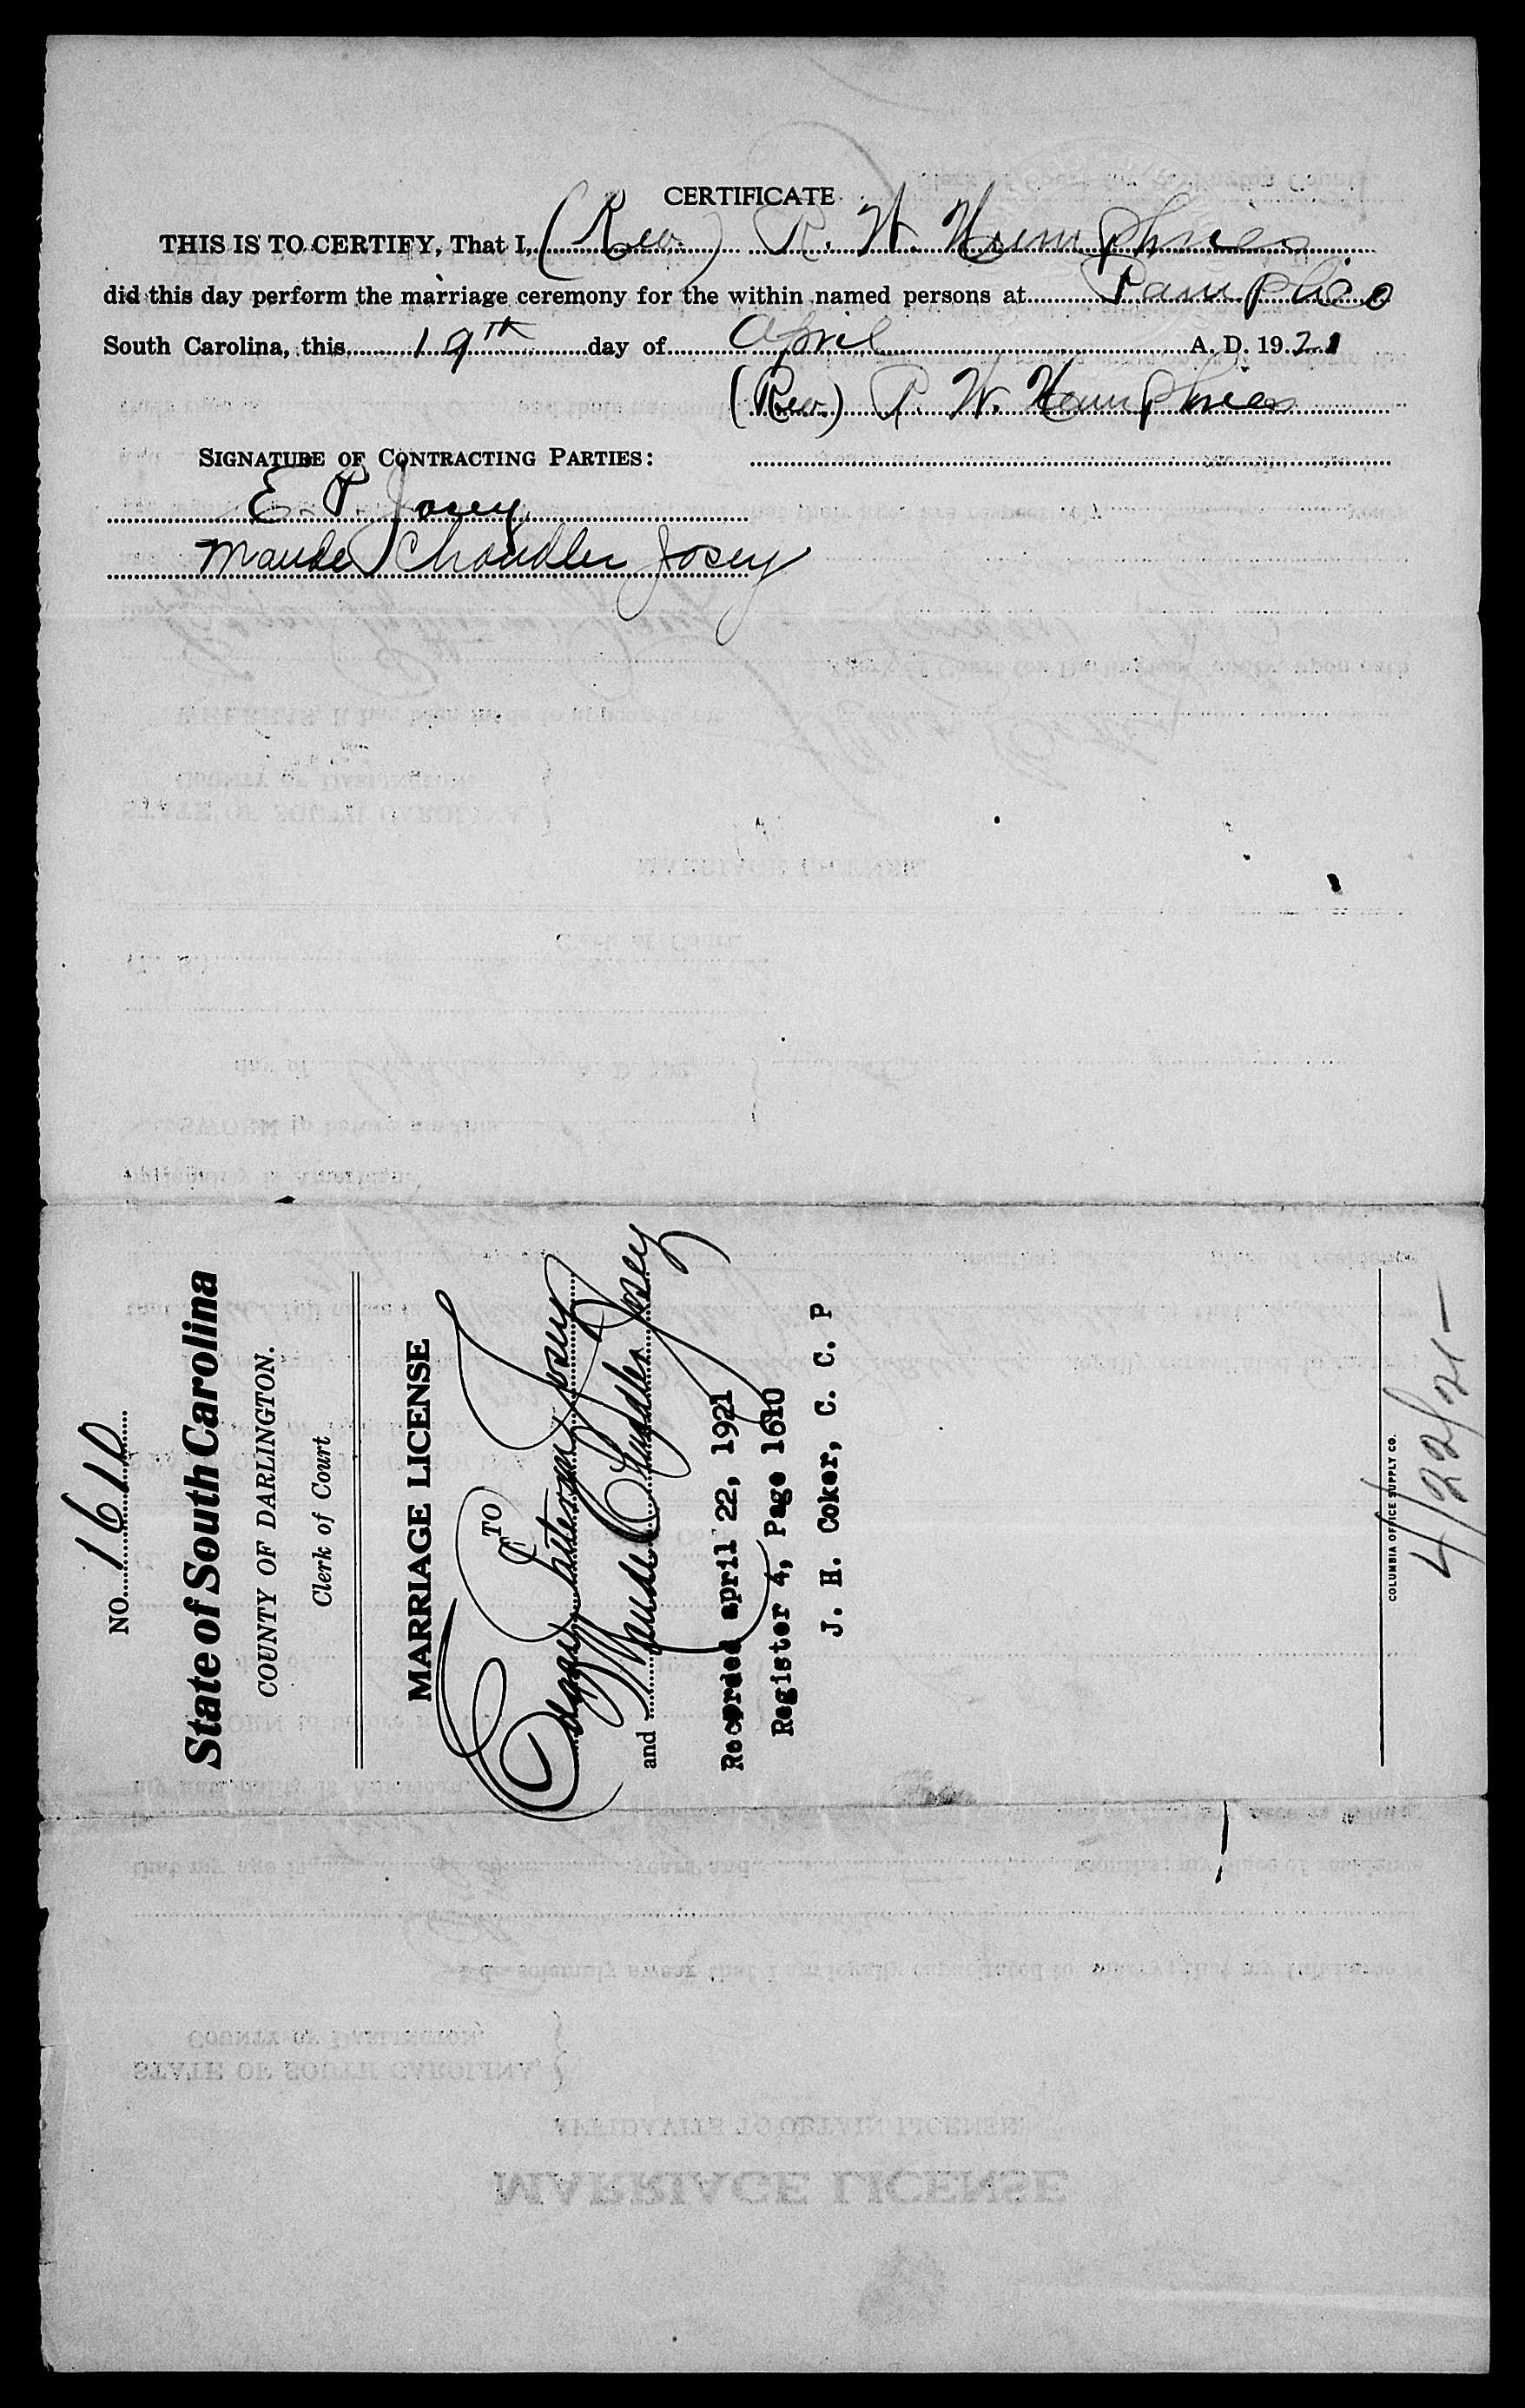 CERTIFICATE
THIS IS TO CERTIFY, That I, (Rev.) P. W. Humphries
did this day perform the marriage ceremony for the within named persons at Pamplico
South Carolina, this 19th day of April A. D. 1921
(Rev.) P. W. Humphries
SIGNATURE OF CONTRACTING PARTIES:
E. P. Josey
Maude Chandler Josey
NO. 1610
State of South Carolina
COUNTY OF DARLINGTON.
Clerk of Court
MARRIAGE LICENSE
TO
Edgar Josey
and Maude Chandler Josey
Recorded april 22, 1921
Register 4, Page 1610
J. H. Coker, C. C. P
COLUMBIA OFFICE SUPPLY CO.
4/22/21 —